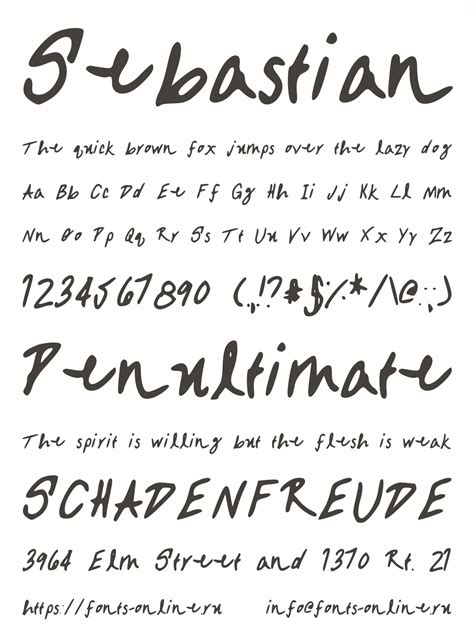 Sebastian
The quick brown fox jumps over the lazy dog
Aa Bb Cc Dd Ee Ff Gg Hh Ii Jj Kk Ll Mm
Nn Oo Pp Qq Rr Ss Tt Uu Vv Ww Xx Yy Zz
1234567890 (.,!?#$%*/\@:;)
Penultimate
The spirit is willing but the flesh is weak
SCHADENFREUDE
3964 Elm Street and 1370 Rt. 21
https://fonts-online.ru info@fonts-online.ru